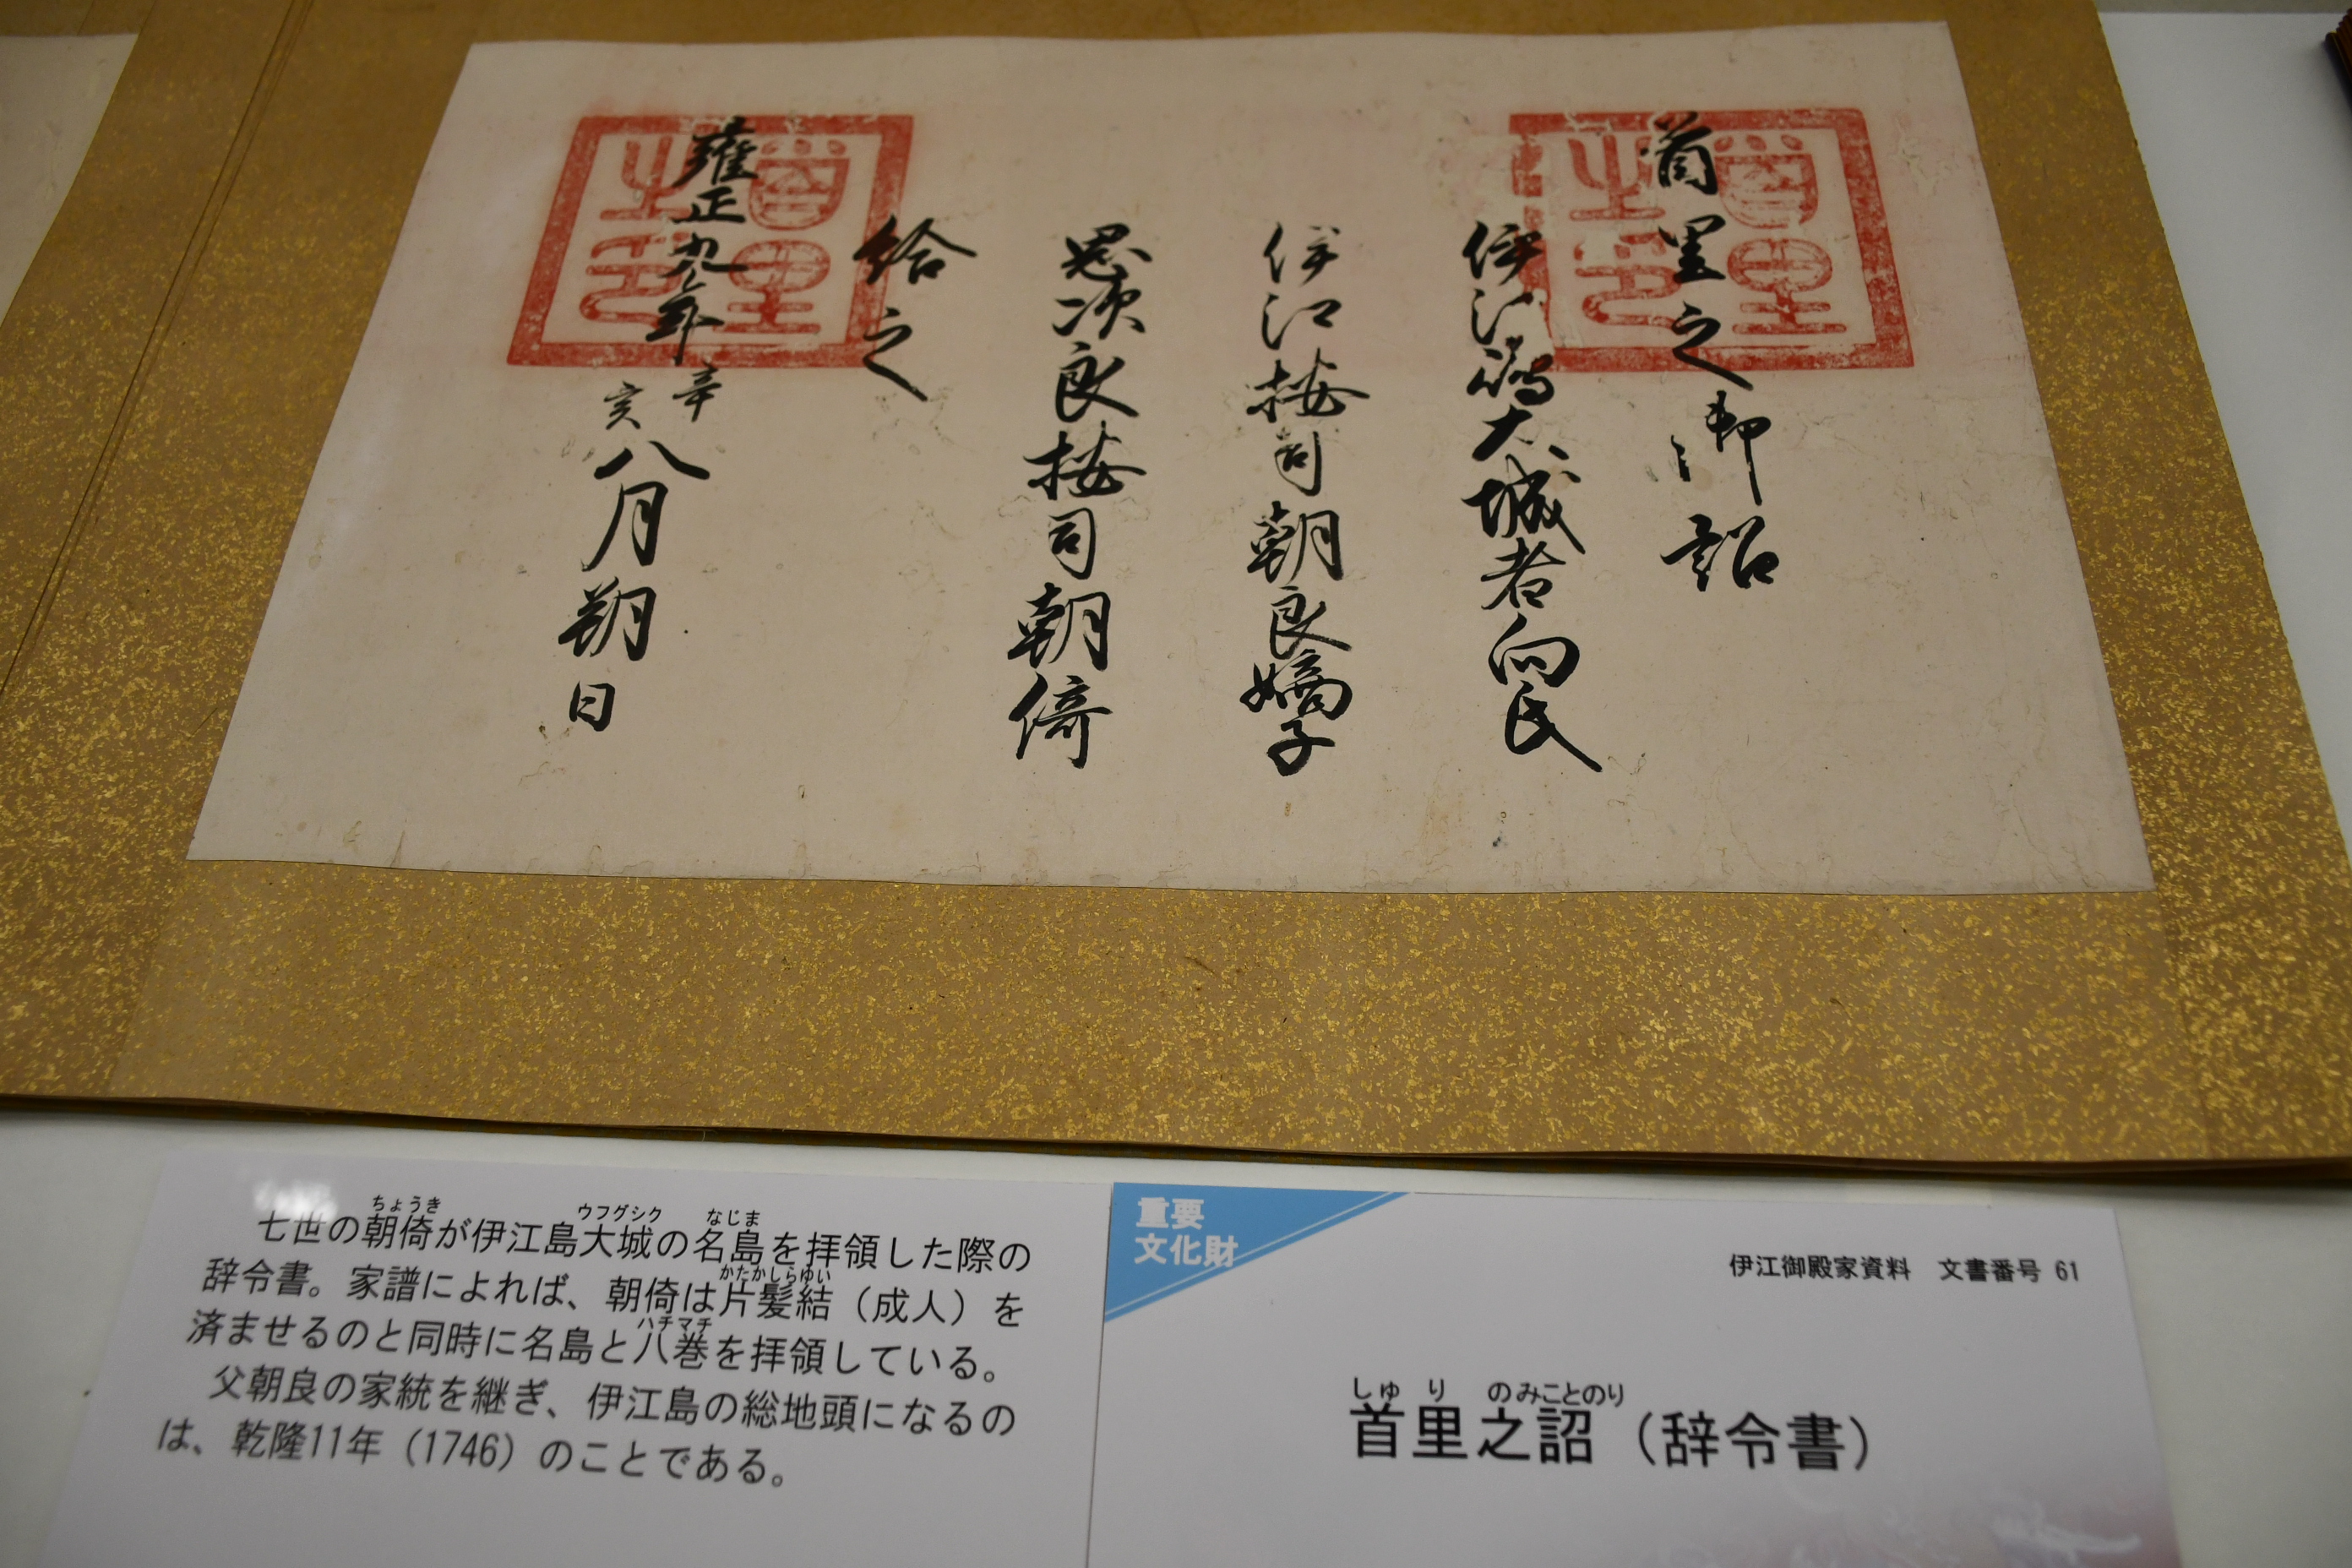 首里之御詔
伊江嶋大城者向氏
伊江按司朝良嫡子
思次良按司朝倚
給之
雍正九年辛亥八月朔日
首里之印
首里之印
七世の朝倚が伊江島大城の名島を拝領した際の
ちょうき
ウフグシク
なじま
辞令書。家譜によれば、朝倚は片髪結（成人）を
かたかしらゆい
済ませるのと同時に名島と八巻を拝領している。
ハチマチ
父朝良の家統を継ぎ、伊江島の総地頭になるの
は、乾隆11年（1746）のことである。
重要
文化財
伊江御殿家資料　文書番号 61
しゅ り のみことのり
首里之詔（辞令書）